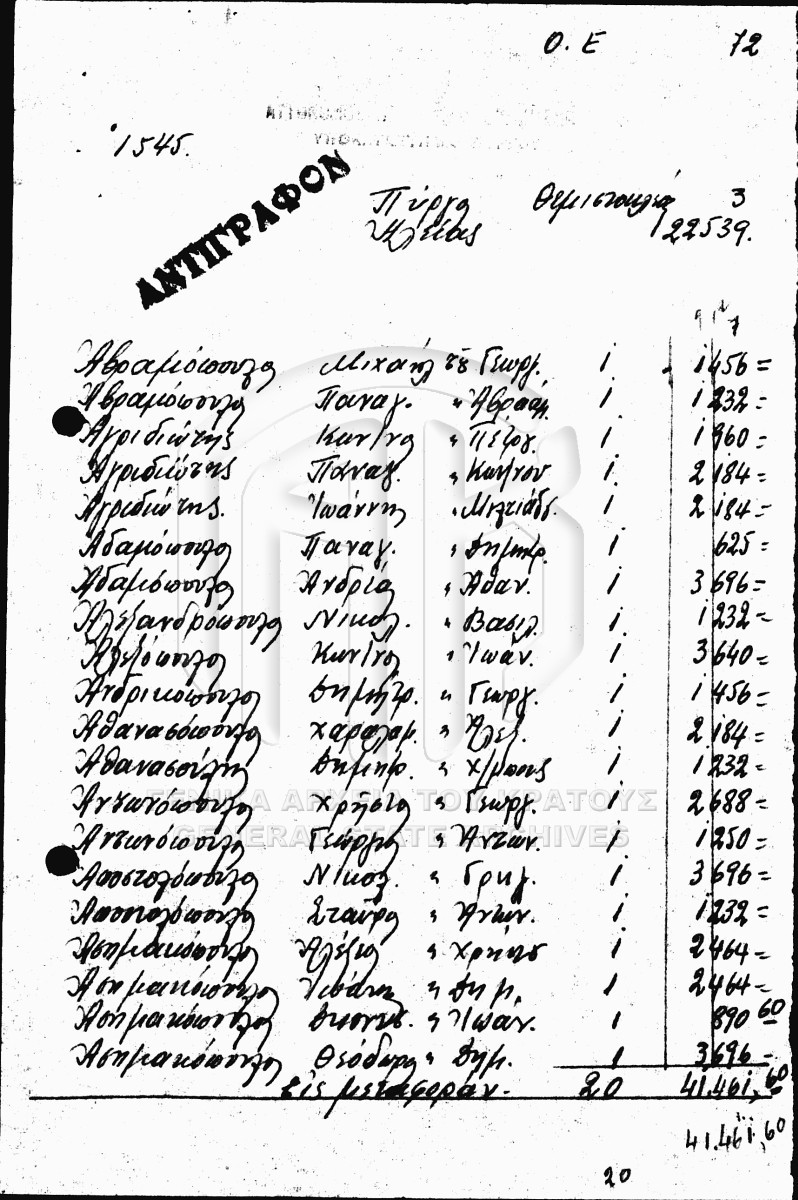 Ο. Ε 72
1545.
ΑΝΤΙΓΡΑΦΟΝ
Πύργος Θεμιστοκλέους 3
Ηλείας 122539.
Αβραμόπουλος Μιχαήλ τοῦ Γεωργ. 1 1456=
Αβραμόπουλος Παναγ. " Αβραάμ. 1 1232=
Αγριδιώτης Κων/νος " Πέτρ. 1 1960=
Αγριδιώτης Παναγ. " Κων/νου 1 2184=
Αγριδιώτης. Ἰωάννης " Μιλτιάδ. 1 2184=
Αδαμόπουλος Παναγ. " Δημητρ. 1 625=
Αδαμόπουλος Ανδρέας " Αθαν. 1 3696=
Αλεξανδρόπουλος Νικολ. " Βασιλ. 1 1232=
Αλεξόπουλος Κων/νος " Ἰωάν. 1 3640=
Ανδρικόπουλος Δημήτρ. " Γεωργ. 1 1456=
Αθανασόπουλος Χαραλαμ. " Αλεξ. 1 2184=
Αθανασούλης Δημητρ. " Χ/μπους 1 1232=
Αντωνόπουλος Χρήστος " Γεωργ. 1 2688=
Αντωνόπουλος Γεώργιος " Αντων. 1 1250=
Αποστολόπουλος Νικολ. " Γρηγ. 1 3696=
Αποστολόπουλος Σταύρος " Αντων. 1 1232=
Ασημακόπουλος Αλέξιος " Χρήστου 1 2464=
Ασημακόπουλος Ἰωάννης " Δημ. 1 2464=
Ασημακόπουλος Διονύσ. " Ἰωάν. 1 890 60
Ασημακόπουλος Θεόδωρος " Δημ. 1 3696=
Εἰς μεταφοράν. 20 41.461,60
41.461,60
20
ΓΕΝΙΚΑ ΑΡΧΕΙΑ ΤΟΥ ΚΡΑΤΟΥΣ
GENERAL STATE ARCHIVES